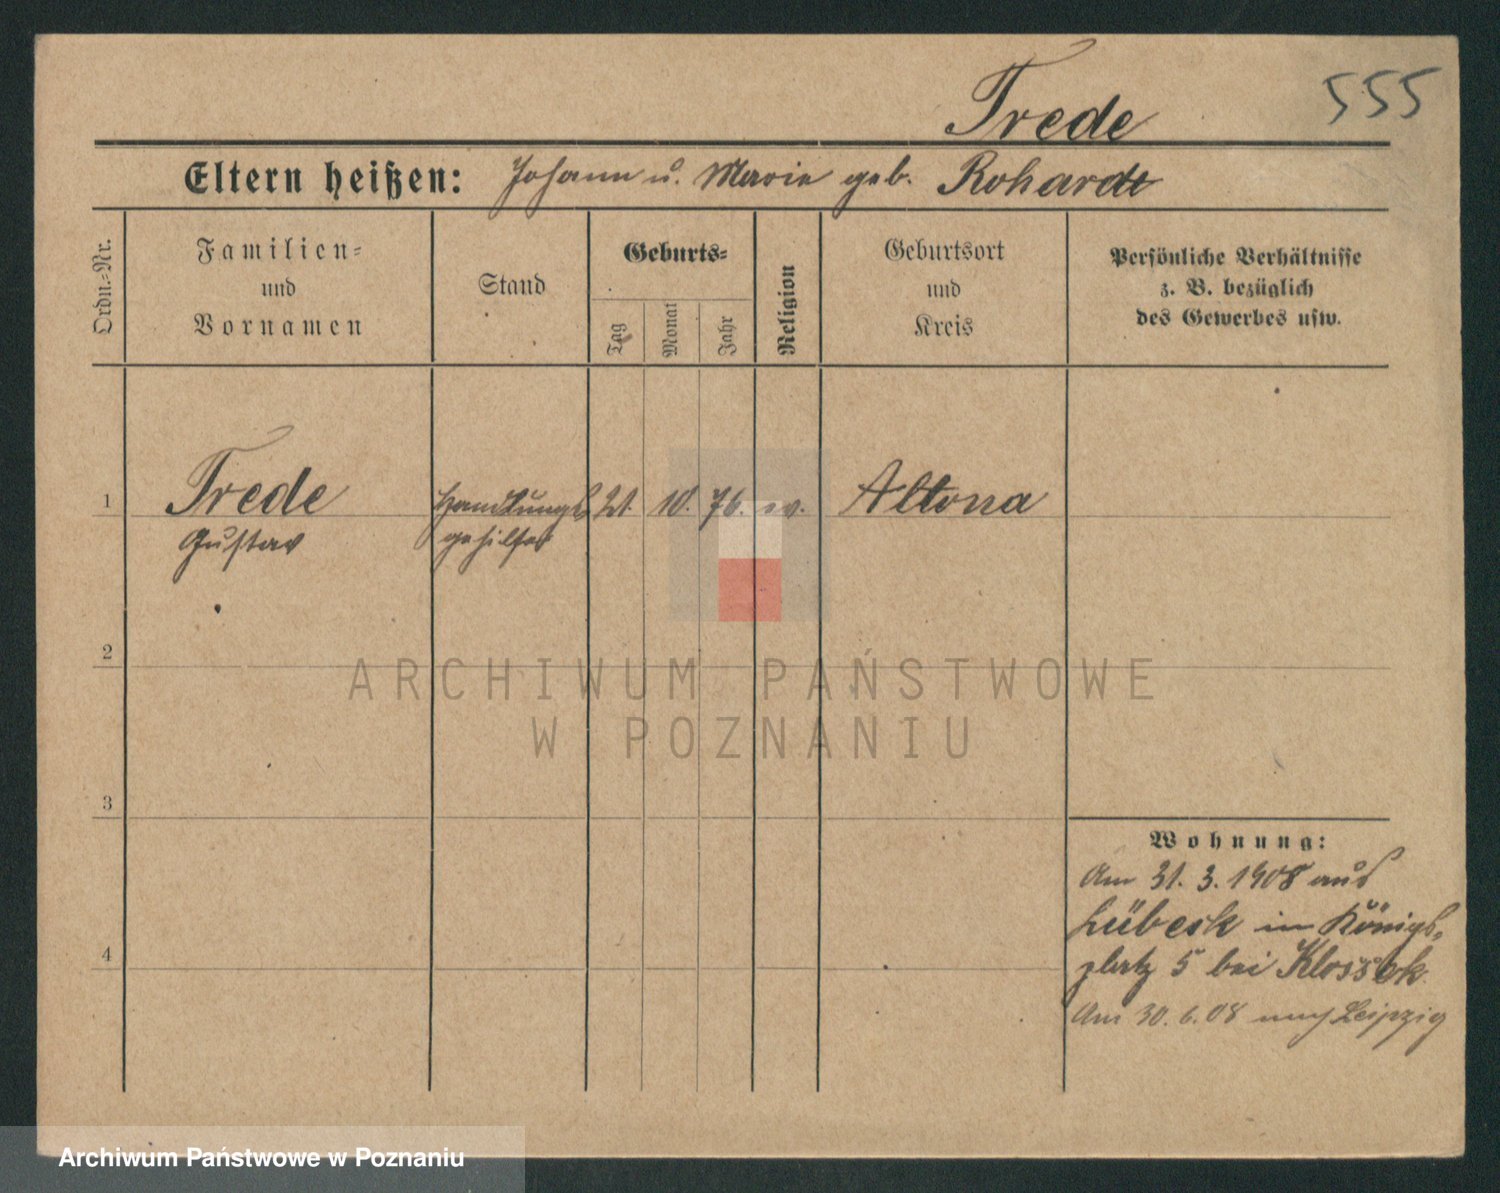 Trede
555
Eltern heißen: Johann u. Marie geb. Rohardt
Ordn.-Nr.
Familien-
und
Vornamen
Stand
Geburts-
Tag
Monat
Jahr
Religion
Geburtsort
und
Kreis
Persönliche Verhältnisse
z. B. bezüglich
des Gewerbes usw.
1
Trede
Gustav
Handlungs
gehilfe
21. 10. 76. ev.
Altona
2
ARCHIWUM PAŃSTWOWE
W POZNANIU
3
4
Wohnung:
Am 31. 3. 1908 aus
Lübeck in Königs-
platz 5 bei
Am 30. 6. 08 nach Leipzig
Archiwum Państwowe w Poznaniu